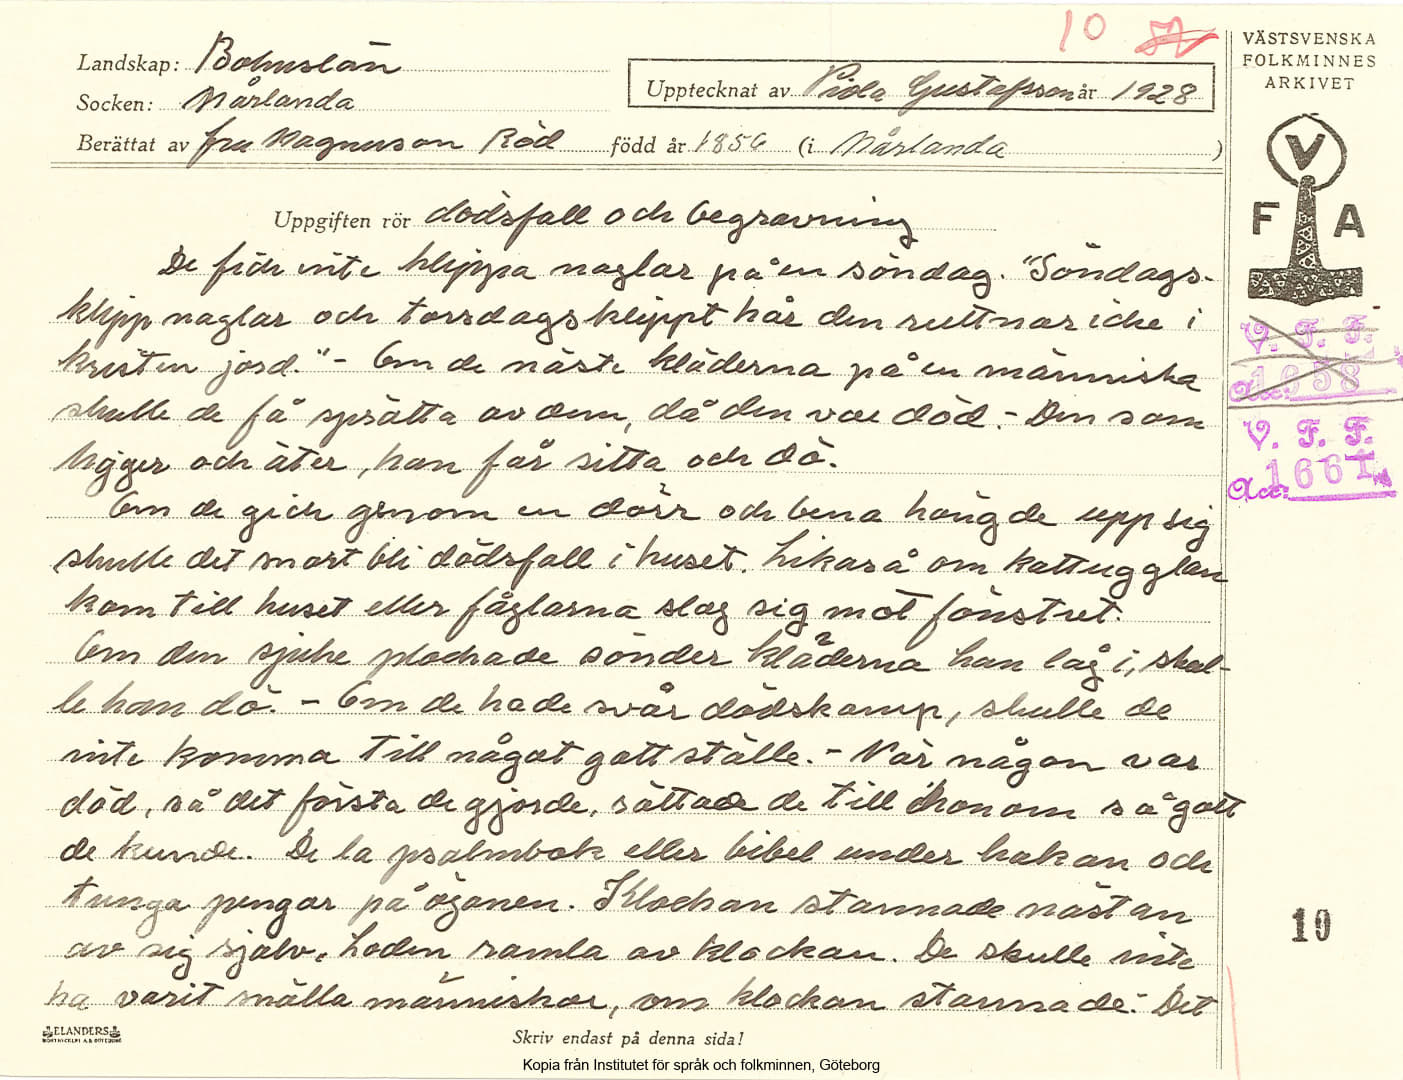 10 52
Landskap: Bohuslän
Socken: Norlanda
Upptecknat av Viola Gustafsson år 1928
Berättat av fru Magnuson Röd född år 1856 (i Norlanda)
VÄSTSVENSKA
FOLKMINNES
ARKIVET
V
F A
V. F. F.
Acc: 1658
V. F. F.
Acc: 1661
Uppgiften rör dödsfall och begravning
De fick inte klippa naglar på en söndag. "Söndags-
klipp naglar och torsdagsklippt hår den ruttnar icke i
kristen jord." - Om de näste kläderna på en människa
skulle de få sprätta av dem, då den var död. - Den som
ligger och äter, han får sitta och dö.
Om de gick genom en dörr och bena hängde upp sig
skulle det snart bli dödsfall i huset. Likaså om kattugglan
kom till huset eller fåglarna slog sig mot fönstret.
Om den sjuke plockade sönder kläderna han låg i, skul-
le han dö. - Om de hade svår dödskamp, skulle de
inte komma till något gott ställe. - När någon var
död, så det första de gjorde, sättade de till honom så gott
de kunde. De la psalmbok eller bibel under hakan och
tunga pengar på ögonen. Klockan stannade nästan
av sig själv, loden ramla av klockan. De skulle inte
ha varit snälla människor, om klockan stannade. Det
10
ELANDERS
Skriv endast på denna sida!
Kopia från Institutet för språk och folkminnen, Göteborg